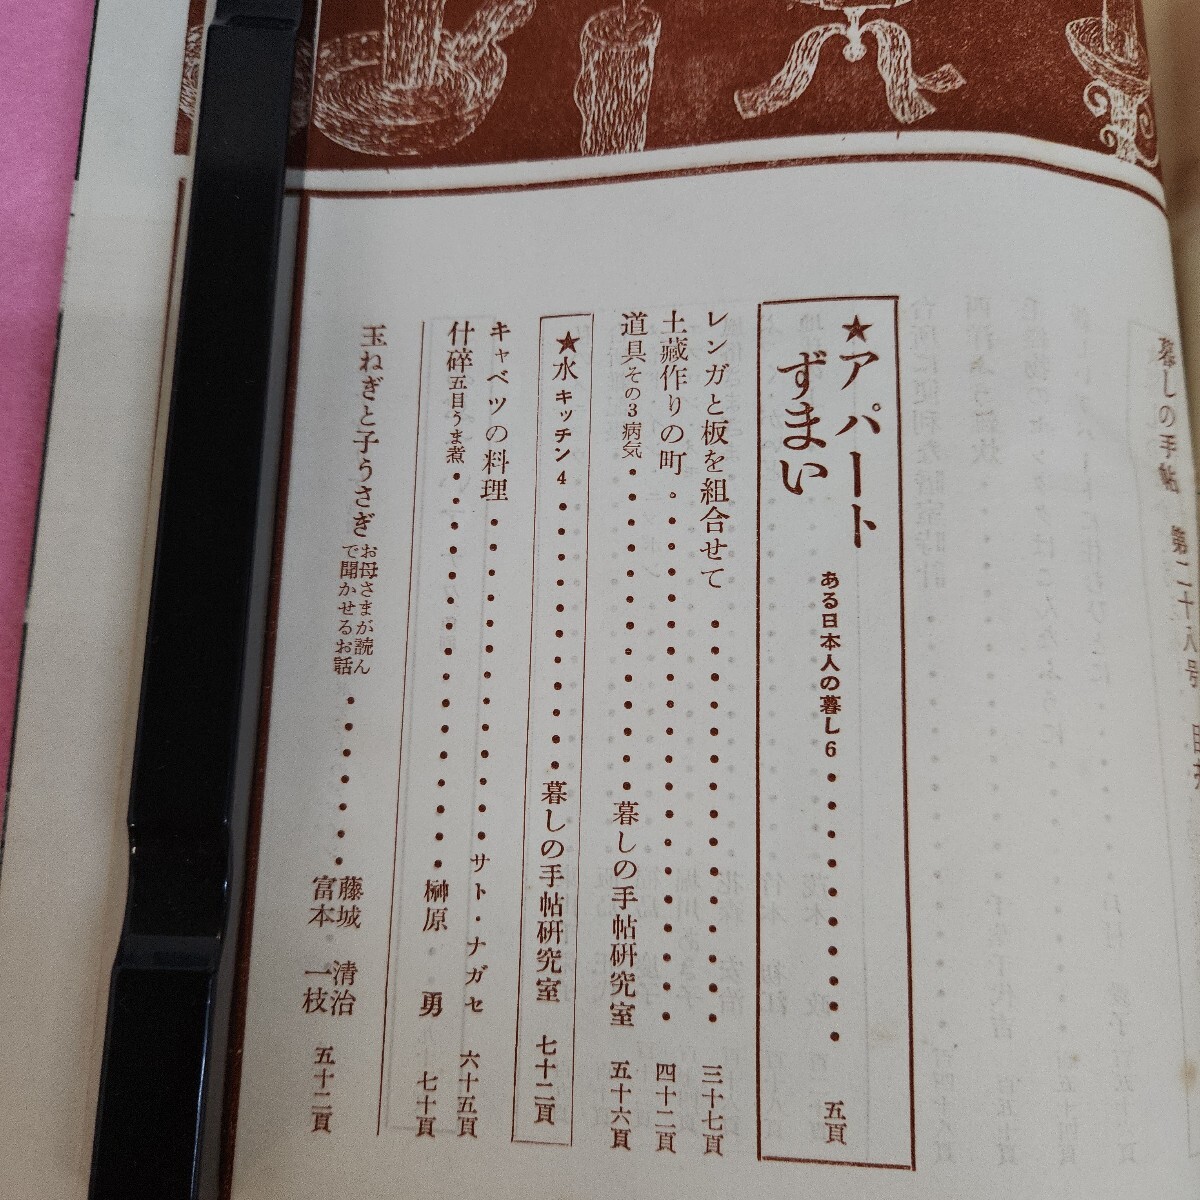 暮しの手帖 第二十八号
★アパートずまい ある日本人の暮し6・・・・・・・・・・五頁
レンガと板を組合せて・・・・・・・・・・・・・・三十七頁
土蔵作りの町・・・・・・・・・・・・・・・・・・四十二頁
道具その3病気・・・・・・・・・・・・暮しの手帖研究室 五十六頁
★水 キッチン4・・・・・・・・・・暮しの手帖研究室 七十二頁
キャベツの料理・・・・・・・・・・・・サト・ナガセ 六十五頁
什碎五目うま煮・・・・・・・・・・・・・・・榊原 勇 七十頁
玉ねぎと子うさぎ お母さまが読んで聞かせるお話・・・・・・・藤城 清治
富本 一枝 五十二頁